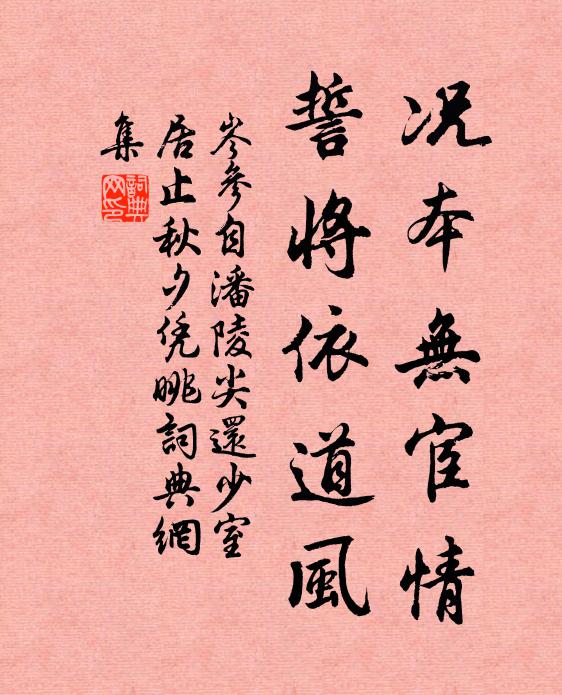 况本無宦情
誓將依道風
岑參自潘陵尖還少室
居止秋夕凭眺詞典網
集
詞典
网印